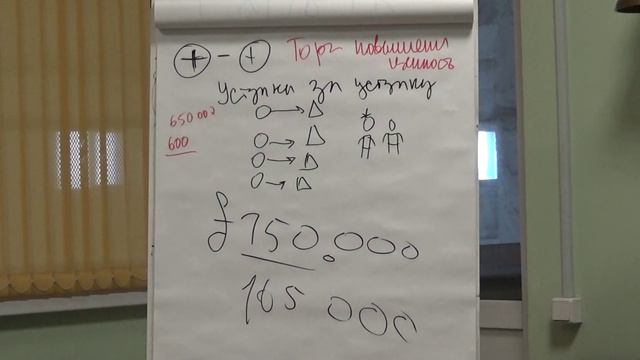 + - +
Торг повышени
ценность
Уступки за уступку
650 000
600
£750.000
165 000